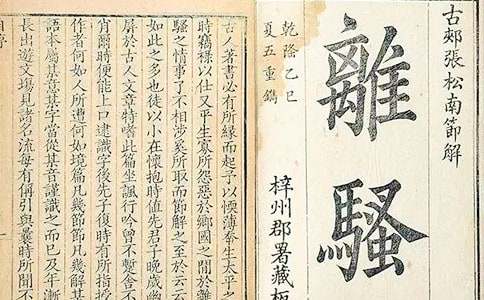 古郟張松南節解
離騷
乾隆乙巳
夏五重鐫
梓州郡署藏板
古著書必有所緣而起予以愞薄忝生太平之
時竊祿以仕又平生寡所怨惡於鄉國之間於離
騷之情事了不相涉奚所取而節解之至於云云
如此之多也徒以小在懷抱時值先君子晚歲幽
屏於古人文章特嗜此篇坐諷行吟曾不蹔舍不
肖爾時便能上口逮識字後先子復時有所指授
作者何如人所遭何如境篇凡幾節節凡幾解某
語本屬某意某字當從某音謹識之而已及年漸
長出遊文場見諸名流每有偁引與曩時所聞不